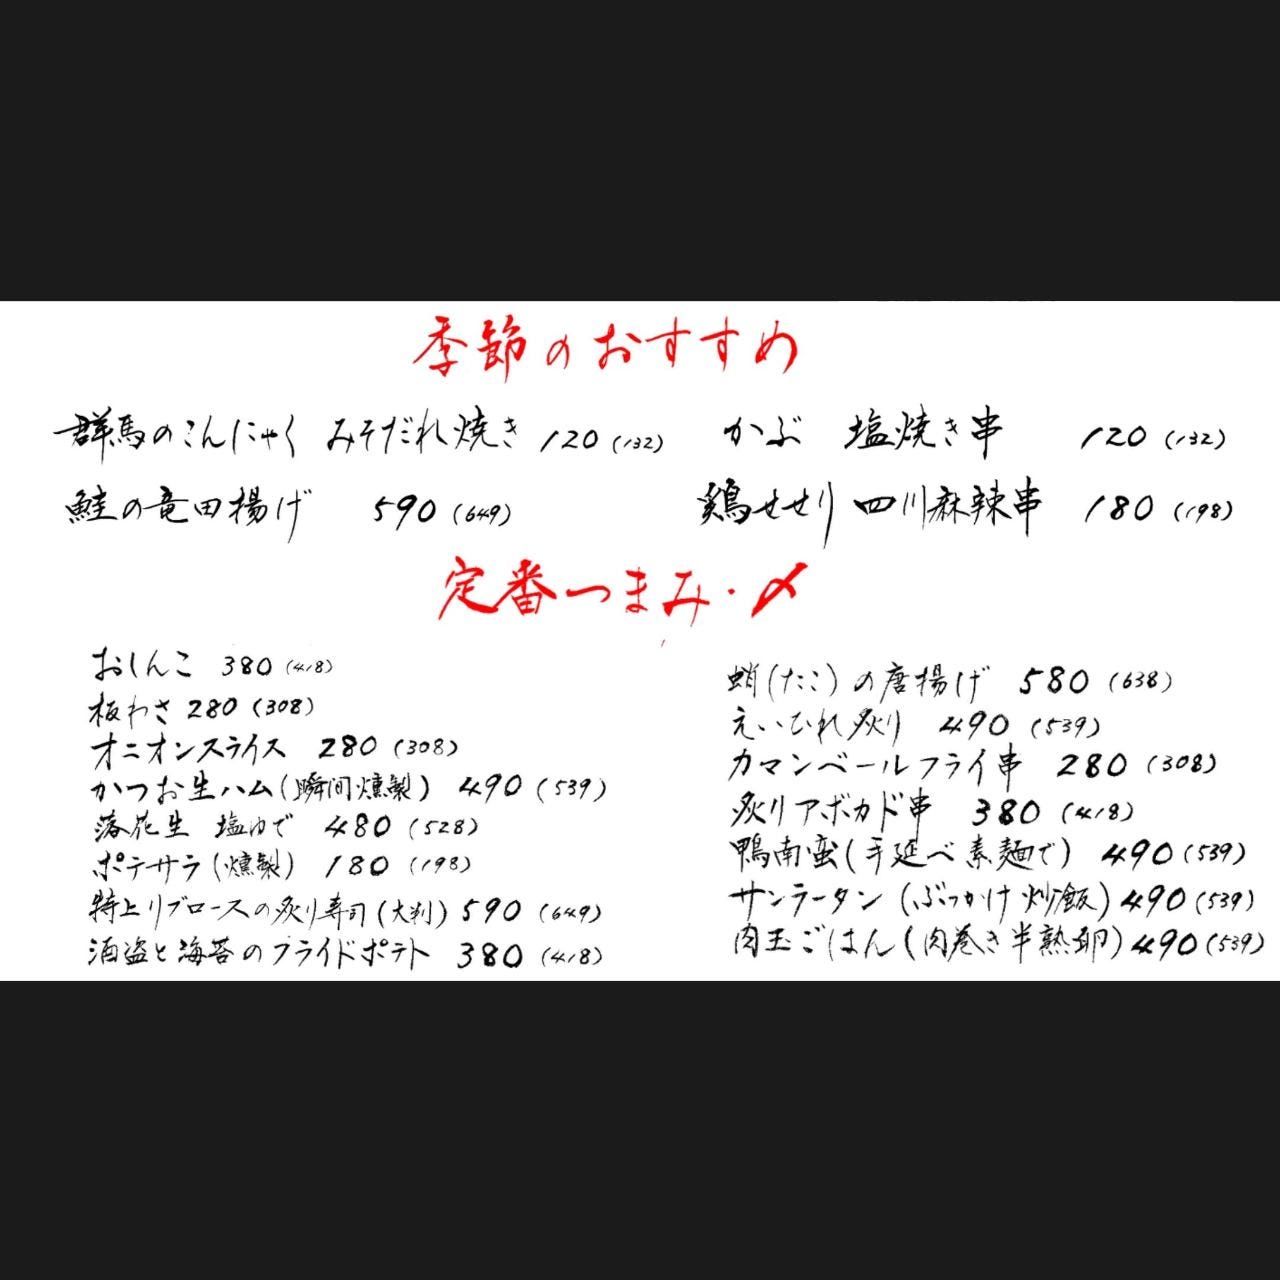 季節のおすすめ
群馬のこんにゃく みそだれ焼き 120 (132)
かぶ 塩焼き串 120 (132)
鮭の竜田揚げ 590 (649)
鶏せせり 四川麻辣串 180 (198)
定番つまみ・〆
おしんこ 380 (418)
板わさ 280 (308)
オニオンスライス 280 (308)
かつお生ハム(瞬間燻製) 490 (539)
落花生 塩ゆで 480 (528)
ポテサラ(燻製) 180 (198)
特上リブロースの炙り寿司(大判) 590 (649)
酒盗と海苔のフライドポテト 380 (418)
蛸(たこ)の唐揚げ 580 (638)
えいひれ炙り 490 (539)
カマンベールフライ串 280 (308)
炙りアボカド串 380 (418)
鴨南蛮(手延べ素麺で) 490 (539)
サンラータン(ぶっかけ炒飯) 490 (539)
肉玉ごはん(肉巻き半熟卵) 490 (539)